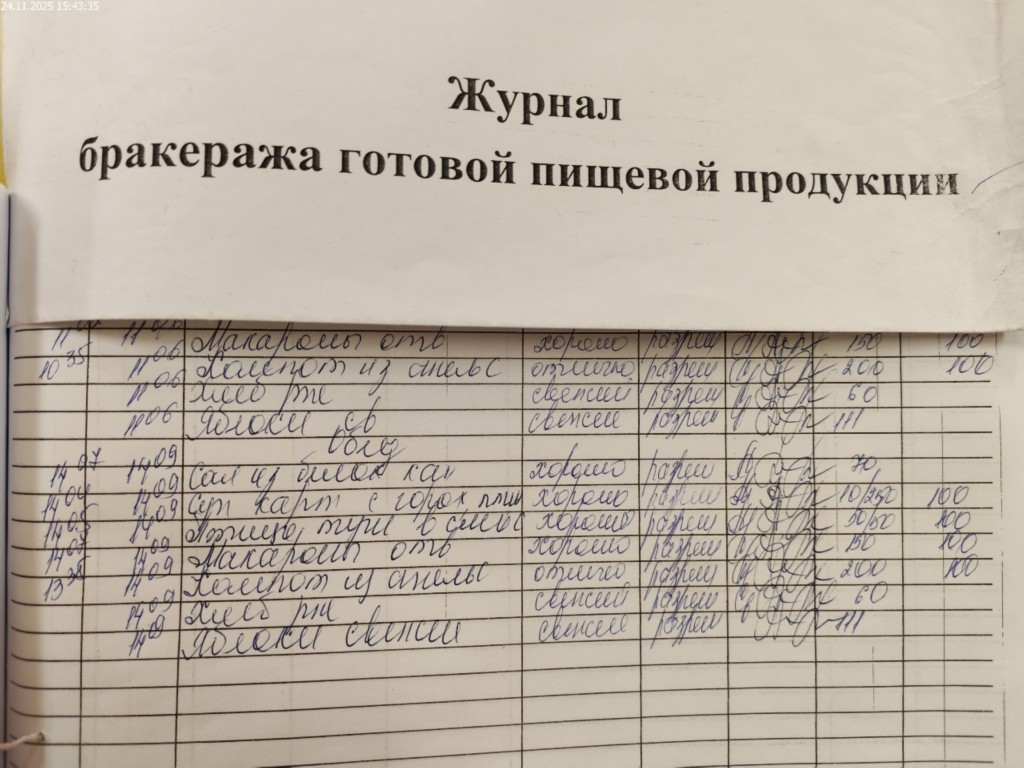 24.11.2025 15:43:35
Журнал
бракеража готовой пищевой продукции
Макароны отв хорошо разреш 150 100
10 35 11 06 Компот из апельс отлично разреш 200 100
11 06 Хлеб рж свежий разреш 60
11 06 Яблоки св свежие разреш 111
Обед
14 07 14 09 Сал из белок кап хорошо разреш 70
14 04 14 09 Суп карт с горох птиц хорошо разреш 10/250 100
14 05 14 09 Птица туш в смет хорошо разреш 50/50 100
14 07 14 09 Макароны отв хорошо разреш 150 100
13 35 14 09 Компот из апельс отлично разреш 200 100
14 09 Хлеб рж свежий разреш 60
14 09 Яблоки свежие свежие разреш 111